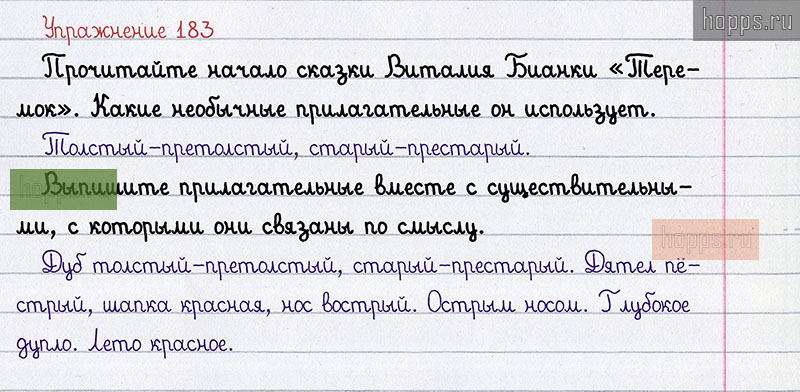 hopps.ru
Упражнение 183
Прочитайте начало сказки Виталия Бианки «Тере-
мок». Какие необычные прилагательные он использует.
Толстый-претолстый, старый-престарый.
Выпишите прилагательные вместе с существительны-
ми, с которыми они связаны по смыслу.
hopps.ru
Дуб толстый-претолстый, старый-престарый. Дятел пё-
стрый, шапка красная, нос вострый. Острым носом. Глубокое
дупло. Лето красное.